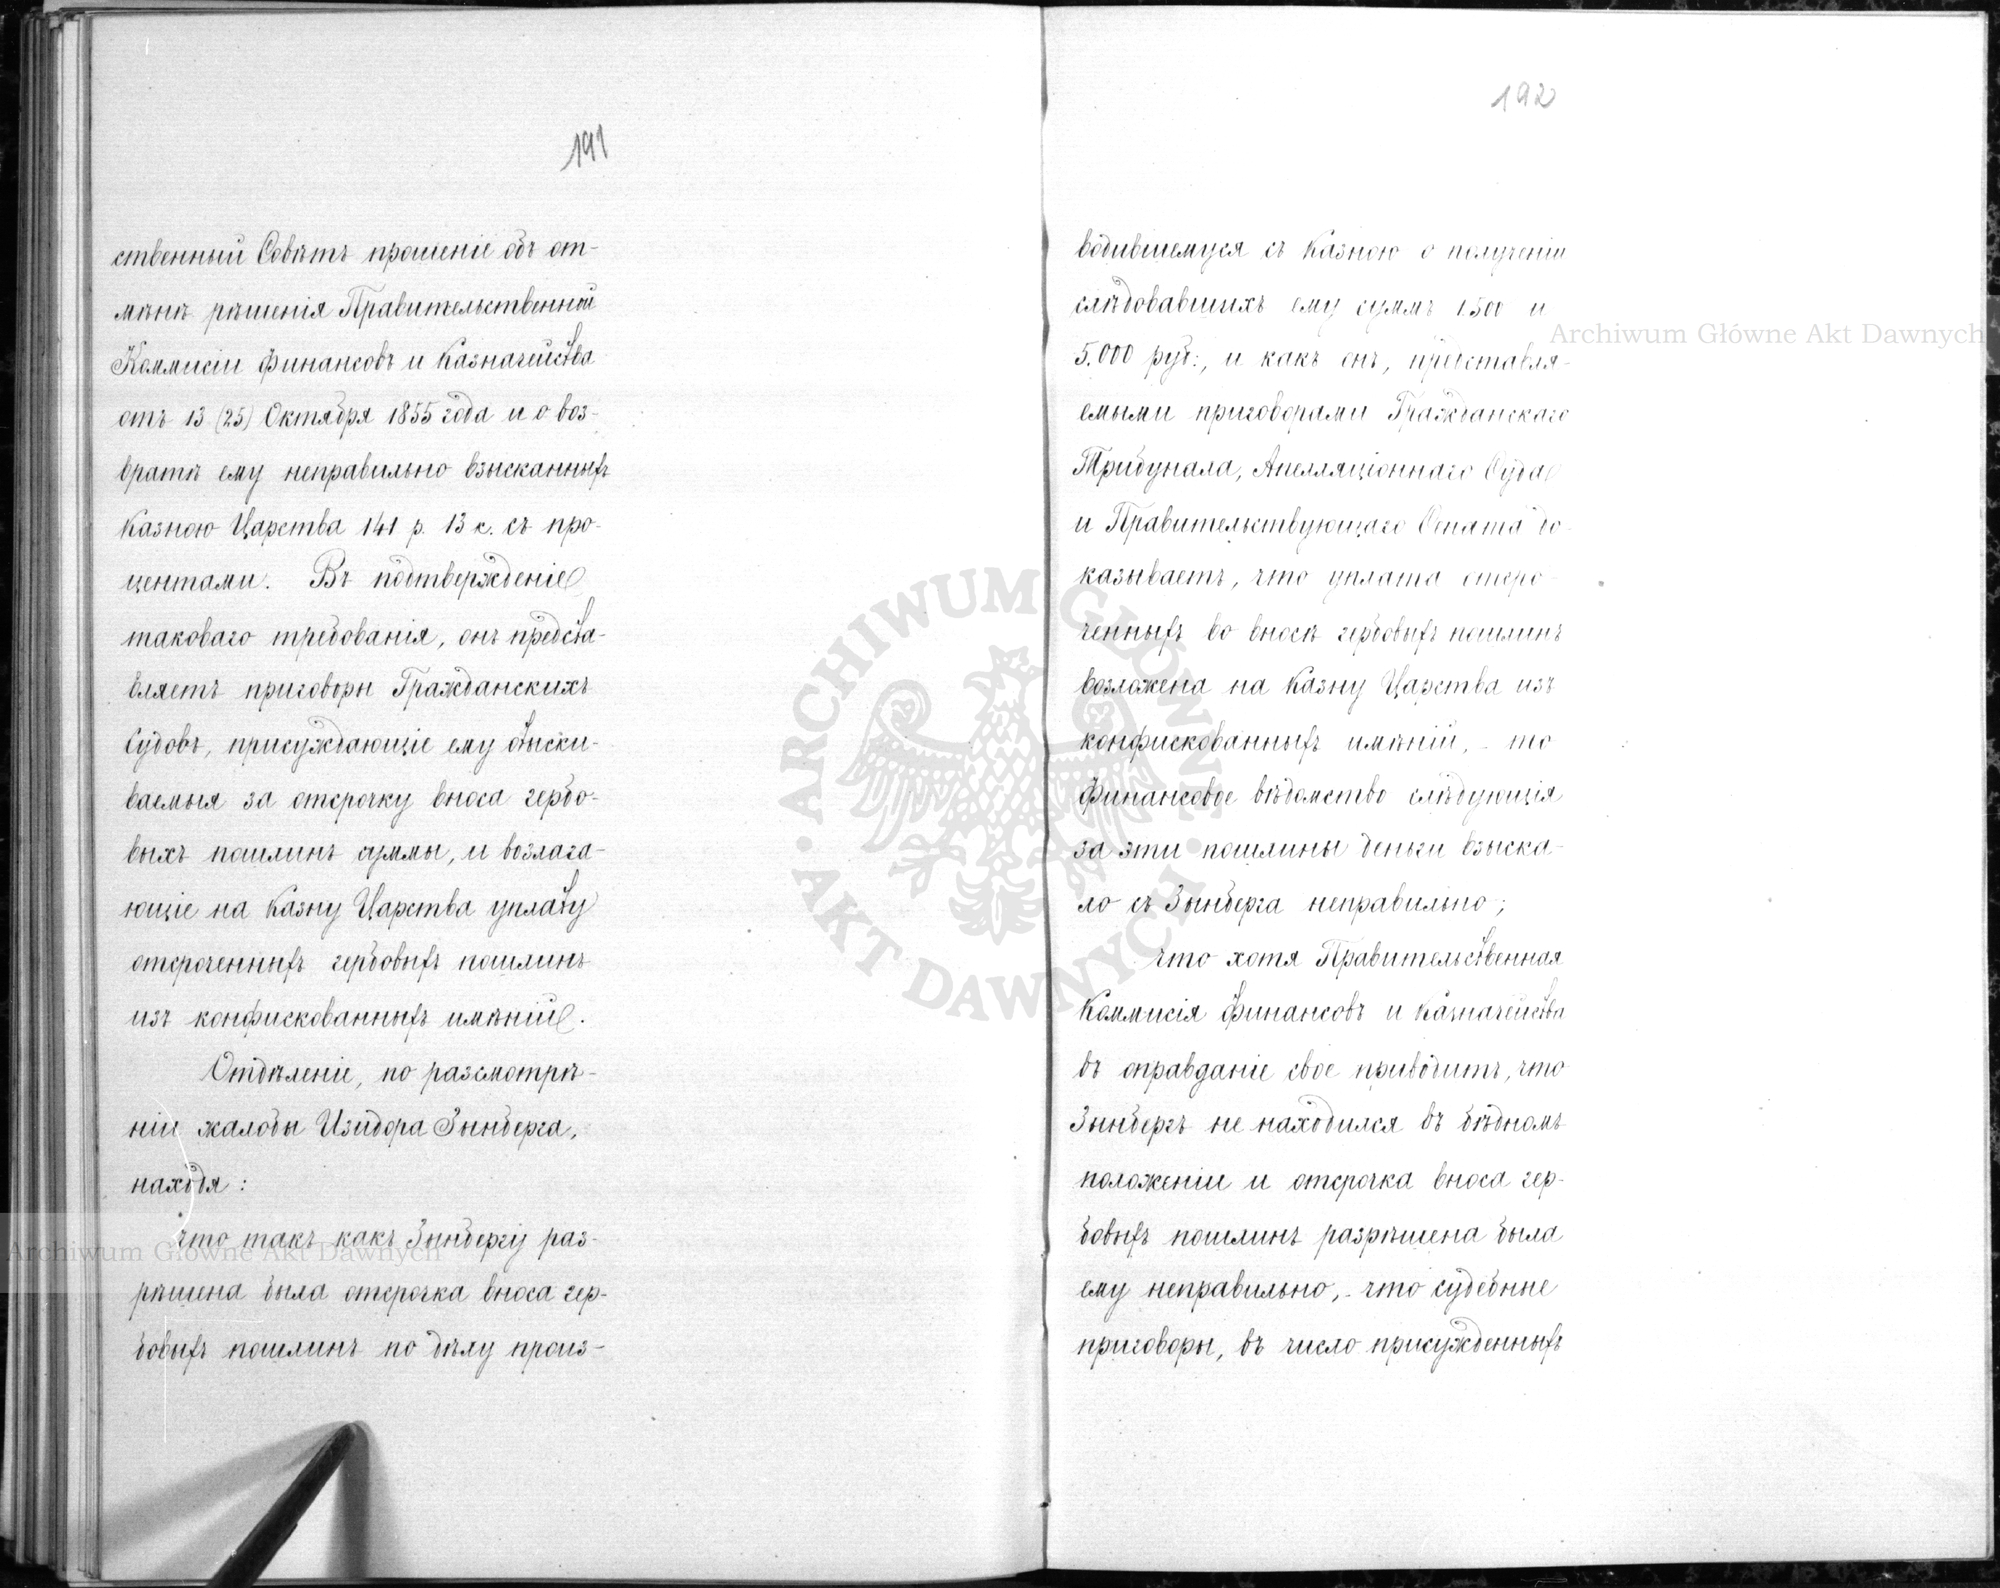 191
ственный Совѣтъ прошеніе объ от-
мѣнѣ рѣшенія Правительственной
Коммисіи Финансовъ и Казначейства
отъ 13 (25) Октября 1855 года и о воз-
вратѣ ему неправильно взысканныхъ
Казною Царства 141 р. 13 к. съ про-
центами. Въ подтвержденіе
таковаго требованія, онъ предста-
вляетъ приговоры Гражданскихъ
Судовъ, присуждающіе ему отыски-
ваемыя за отсрочку вноса гербо-
выхъ пошлинъ суммы, и возлага-
ющіе на Казну Царства уплату
отсроченныхъ гербовыхъ пошлинъ
изъ конфискованныхъ имѣній.
Отдѣленіе, по разсмотрѣ-
ніи жалобы Изидора Зынберга,
находя:
что такъ какъ Зынбергу раз-
рѣшена была отсрочка вноса гер-
бовыхъ пошлинъ по дѣлу произ-
192
водившемуся съ Казною о полученіи
слѣдовавшихъ ему суммъ 1.500 и
5.000 руб:, и какъ онъ, представля-
емыми приговорами Гражданскаго
Трибунала, Апелляціоннаго Суда
и Правительствующаго Сената до-
казываетъ, что уплата отсро-
ченныхъ во вносѣ гербовыхъ пошлинъ
возложена на Казну Царства изъ
конфискованныхъ имѣній, - то
Финансовое вѣдомство слѣдующія
за эти пошлины деньги взыска-
ло съ Зынберга неправильно;
что хотя Правительственная
Коммисія Финансовъ и Казначейства
въ оправданіе свое приводитъ, что
Зынбергъ не находился въ бѣдномъ
положеніи и отсрочка вноса гер-
бовыхъ пошлинъ разрѣшена была
ему неправильно, - что судебные
приговоры, въ число присужденныхъ
Archiwum Główne Akt Dawnych
Archiwum Główne Akt Dawnych
· ARCHIWUM GŁÓWNE · AKT DAWNYCH